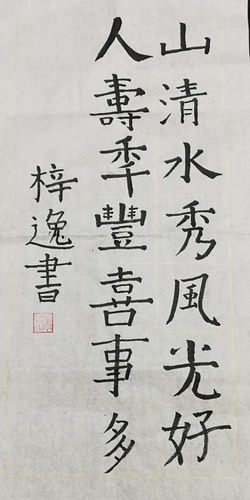 山清水秀風光好
人壽年豐喜事多
梓逸書